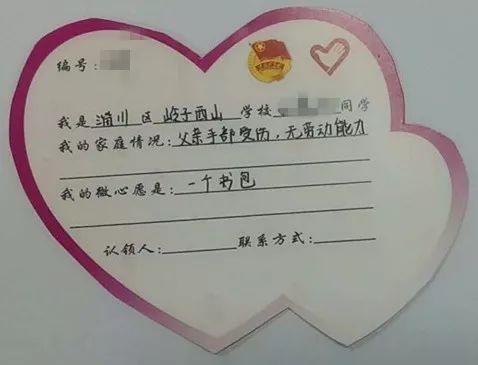 编号:
我是 淄川 区 岭子西山 学校 同学
我的家庭情况: 父亲手部受伤,无劳动能力
我的微心愿是: 一个书包
认领人: 联系方式: